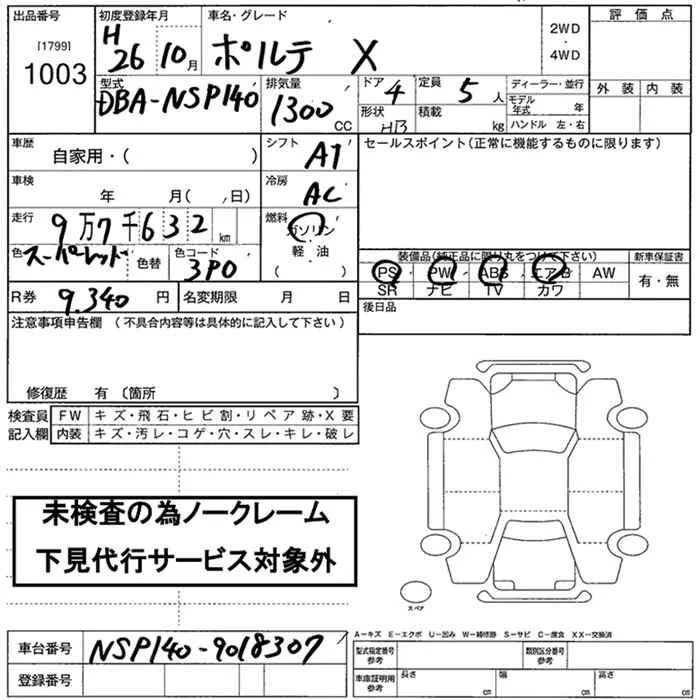 出品番号 初度登録年月 車名・グレード 2WD・4WD 評価点
[1799] 1003 H26 10月 ポルテ X 外装 内装
型式 DBA-NSP140 排気量 1300CC ドア 4 定員 5人 ディーラー・並行
形状 HB 積載 kg モデル年式 年
ハンドル 左・右
車歴 自家用・( ) シフト AT セールスポイント(正常に機能するものに限ります)
車検 年 月( , 日) 冷房 AC
走行 9万7千632km 燃料 ガソリン・軽油 ( )
色 スーパーレッド 色替 色コード 3P0 装備品(純正品に限り丸をつけて下さい) 新車保証書
PS PW ABS エアB AW 有・無
SR ナビ TV カワ
R券 9.340円 名変期限 月 日 後日品
注意事項申告欄 (不具合内容等は具体的に記入して下さい)
修復歴 有 〔箇所 〕
検査員記入欄 FW キズ・飛石・ヒビ割・リペア跡・X要
内装 キズ・汚レ・コゲ・穴・スレ・キレ・破レ
未検査の為ノークレーム
下見代行サービス対象外
スペア
A－キズ E－エクボ U－凹み W－補修跡 S－サビ C－腐食 XX－交換済
車台番号 NSP140-9018307 型式指定番号 参考 類別区分番号 参考
登録番号 車庫証明用 参考 長さ cm 幅 cm 高さ cm